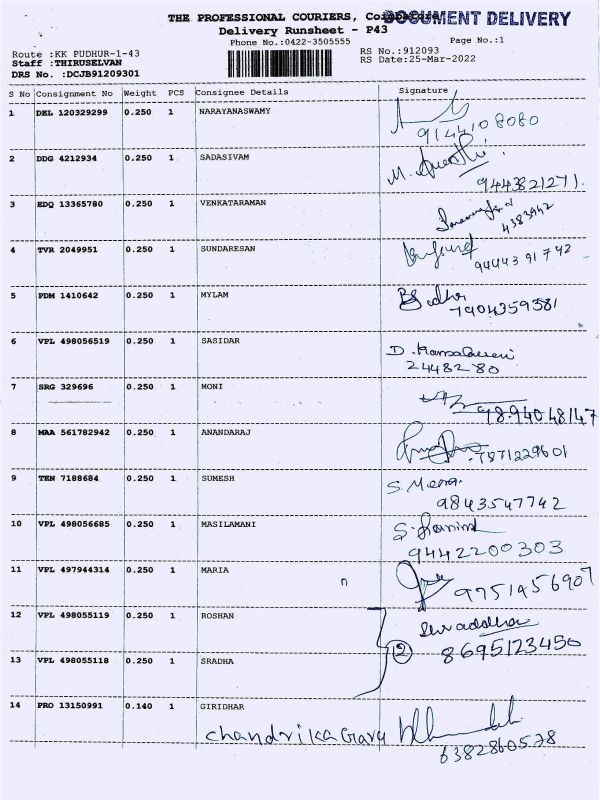 THE PROFESSIONAL COURIERS, Coimbatore
DOCUMENT DELIVERY
Delivery Runsheet - P43
Phone No.:0422-3505555
Page No.:1
Route :KK PUDHUR-1-43
RS No.:912093
Staff :THIRUSELVAN
RS Date:25-Mar-2022
DRS No. :DCJB91209301
S No Consignment No Weight PCS Consignee Details Signature
1 DEL 120329299 0.250 1 NARAYANASWAMY
9144108080
2 DDG 4212934 0.250 1 SADASIVAM
9443821271.
3 EDQ 13365780 0.250 1 VENKATARAMAN
4383942
4 TVR 2049951 0.250 1 SUNDARESAN
94443 91742
5 PDM 1410642 0.250 1 MYLAM
7904359381
6 VPL 498056519 0.250 1 SASIDAR
2448280
7 SRG 329696 0.250 1 MONI
98940 48147
8 MAA 561782942 0.250 1 ANANDARAJ
7871229601
9 TEN 7188684 0.250 1 SUMESH
S. Meena.
9843547742
10 VPL 498056685 0.250 1 MASILAMANI
9442200303
11 VPL 497944314 0.250 1 MARIA
n
9751456907
12 VPL 498055119 0.250 1 ROSHAN
Shraddha
2
8695123450
13 VPL 498055118 0.250 1 SRADHA
14 PRO 13150991 0.140 1 GIRIDHAR
chandrika Garu
6382860578